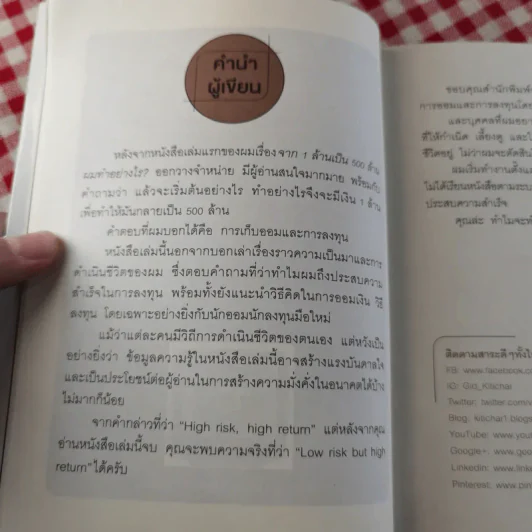 คำนำ
ผู้เขียน
หลังจากหนังสือเล่มแรกของผมเรื่อง จาก 1 ล้านเป็น 500 ล้าน
ผมทำอย่างไร? ออกวางจำหน่าย มีผู้อ่านสนใจมากมาย พร้อมกับ
คำถามว่า แล้วจะเริ่มต้นอย่างไร ทำอย่างไรจึงจะมีเงิน 1 ล้าน
เพื่อทำให้มันกลายเป็น 500 ล้าน
คำตอบที่ผมบอกได้คือ การเก็บออมและการลงทุน
หนังสือเล่มนี้นอกจากบอกเล่าเรื่องราวความเป็นมาและการ
ดำเนินชีวิตของผม ซึ่งตอบคำถามที่ว่าทำไมผมถึงประสบความ
สำเร็จในการลงทุน พร้อมทั้งยังแนะนำวิธีคิดในการออมเงิน วิธี
ลงทุน โดยเฉพาะอย่างยิ่งกับนักออมนักลงทุนมือใหม่
แม้ว่าแต่ละคนมีวิถีการดำเนินชีวิตของตนเอง แต่หวังเป็น
อย่างยิ่งว่า ข้อมูลความรู้ในหนังสือเล่มนี้อาจสร้างแรงบันดาลใจ
และเป็นประโยชน์ต่อผู้อ่านในการสร้างความมั่งคั่งในอนาคตได้บ้าง
ไม่มากก็น้อย
จากคำกล่าวที่ว่า “High risk, high return” แต่หลังจากคุณ
อ่านหนังสือเล่มนี้จบ คุณจะพบความจริงที่ว่า “Low risk but high
return” ได้ครับ
ขอบคุณสำนักพิมพ์
การออมและการลงทุนโดย
และบุคคลที่ผมอยาก
ที่ให้กำเนิด เลี้ยงดู และ
ชีวิตอยู่ ไม่ว่าผมจะตัดสิน
ผมเริ่มทำงานตั้งแต่
ไม่ได้เรียนหนังสือตามระบบ
ประสบความสำเร็จ
คุณล่ะ ทำไมจะ
ติดตามสาระดีๆทั้ง
FB: www.facebook.co
IG: Gid_Kitichai
Twitter: twitter.com
Blog: kitichai1.blogsp
YouTube: www.yout
Google+: www.goo
Linkedin: www.link
Pinterest: www.pin